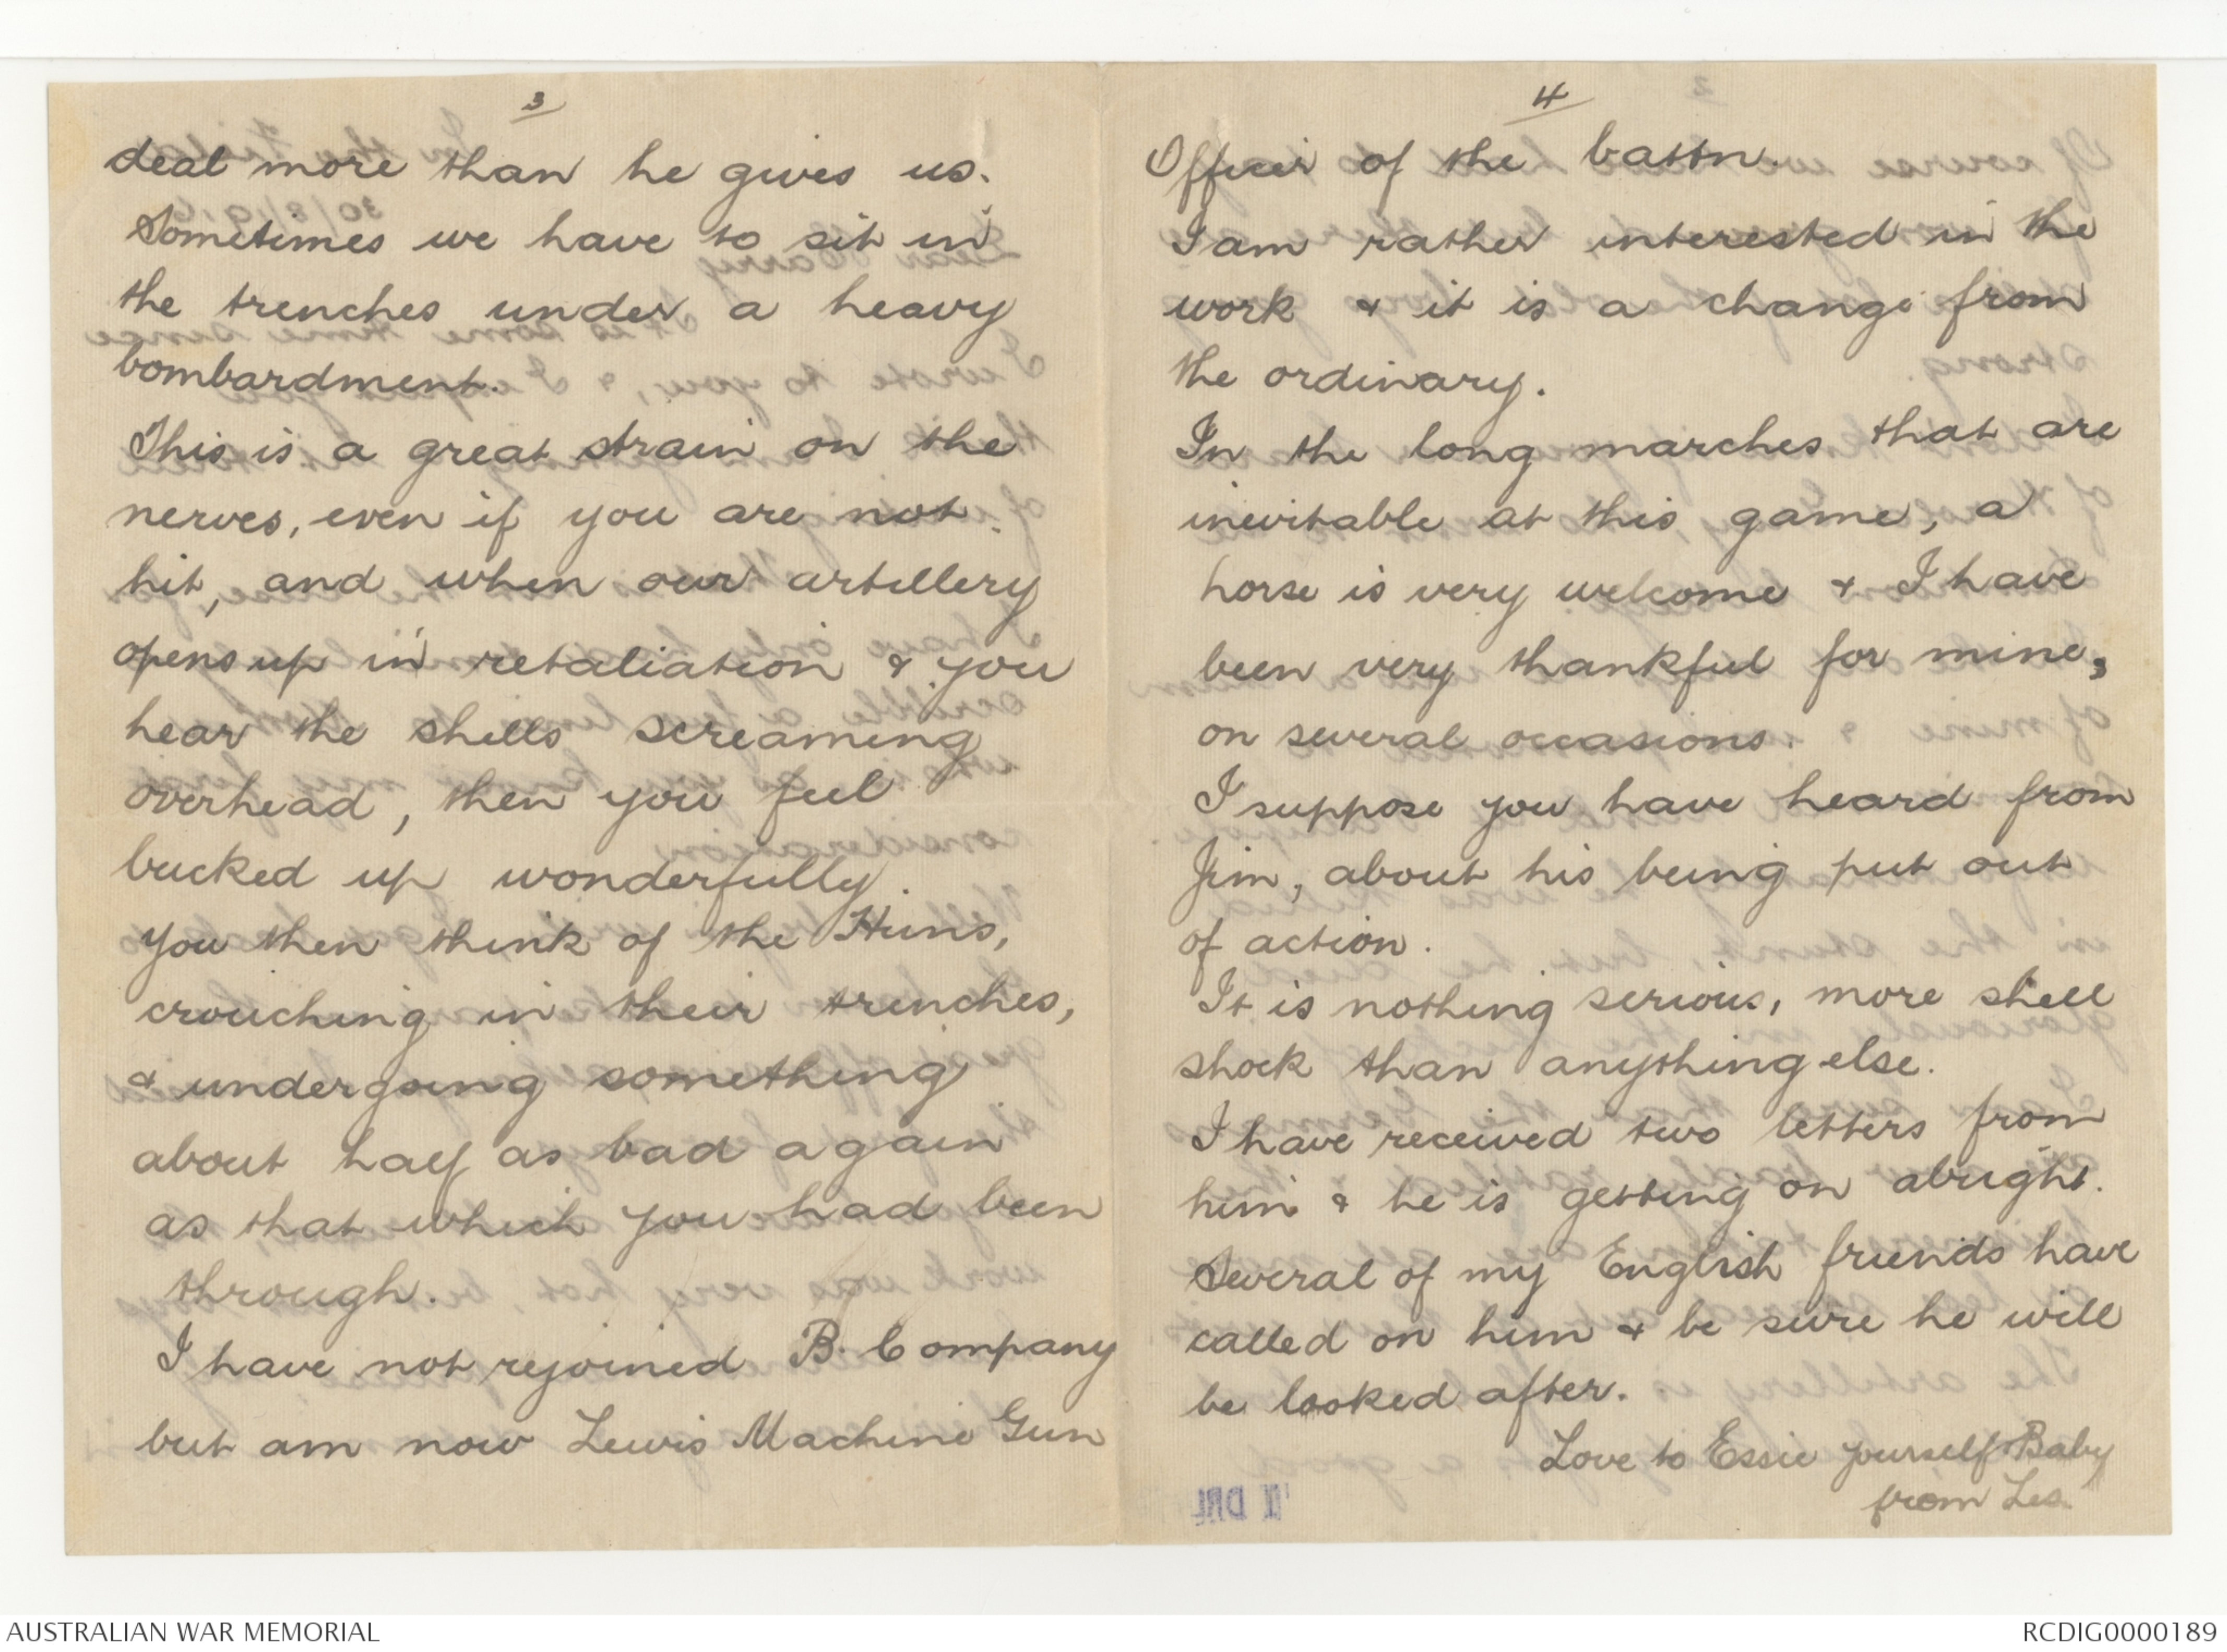 3
deal more than he gives us.
Sometimes we have to sit in
the trenches under a heavy
bombardment.
This is a great strain on the
nerves, even if you are not
hit, and when our artillery
opens up in retaliation & you
hear the shells screaming
overhead, then you feel
bucked up wonderfully.
You then think of the Huns,
crouching in their trenches,
& undergoing something
about half as bad again
as that which you had been
through.
I have not rejoined B. Company
but am now Lewis Machine Gun
4
Officer of the battn.
I am rather interested in the
work & it is a change from
the ordinary.
In the long marches that are
inevitable at this game, a
horse is very welcome & I have
been very thankful for mine,
on several occasions.
I suppose you have heard from
Jim, about his being put out
of action.
It is nothing serious, more shell
shock than anything else.
I have received two letters from
him & he is getting on alright.
Several of my English friends have
called on him & be sure he will
be looked after.
Love to Essie yourself & Baby
from Les.
AUSTRALIAN WAR MEMORIAL
RCDIG0000189